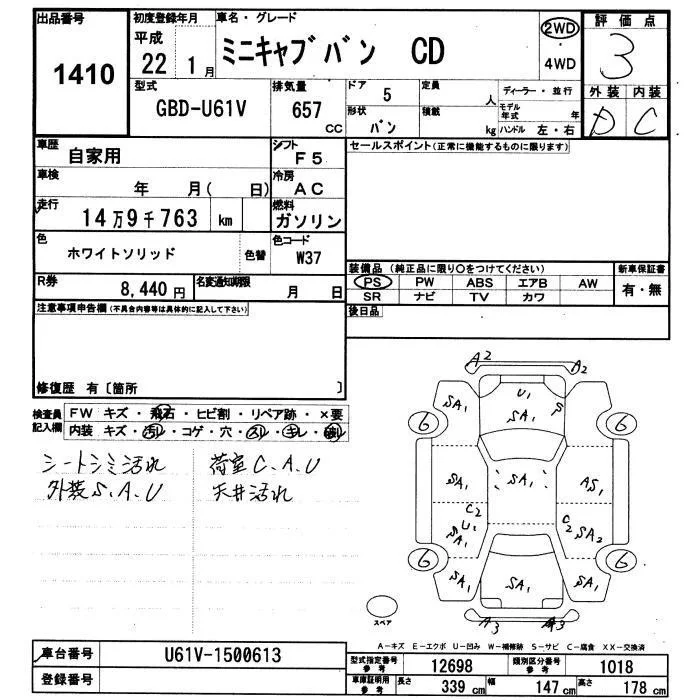 出品番号 1410
初度登録年月 平成 22 1月
車名・グレード ミニキャブバン CD
2WD
4WD
評価点 3
外装 内装
D C
型式 GBD-U61V
排気量 657 CC
ドア 5
形状 バン
定員 人
積載 kg
ディーラー・並行
モデル年式 年
ハンドル 左・右
車歴 自家用
シフト F5
車検 年 月( 日)
冷房 AC
走行 14万9千763 km
燃料 ガソリン
色 ホワイトソリッド 色替
色コード W37
R券 8,440円
名変通知期限 月 日
セールスポイント(正常に機能するものに限ります)
装備品 (純正品に限り○をつけてください)
新車保証書
PS PW ABS エアB AW
SR ナビ TV カワ
有・無
後日品
注意事項申告欄(不具合内容等は具体的に記入して下さい)
修復歴 有〔箇所 〕
検査員記入欄
FW キズ・飛石・ヒビ割・リペア跡・×要
内装 キズ・汚レ・コゲ・穴・スレ・キレ・
シートシミ汚れ 荷室C.A.U
外装S.A.U 天井汚れ
A2 A2
SA1 U1 SA1 S SA1
6 6
SA1 SA1 AS1
C2 U2 SA1 C2 SA2
6 6
SA1 SA1 SA1
A3 A3
スペア
A-キズ E-エクボ U-凹み W-補修跡 S-サビ C-腐食 XX-交換済
車台番号 U61V-1500613
登録番号
型式指定番号参考 12698
類別区分番号参考 1018
車庫証明用参考
長さ 339 cm 幅 147 cm 高さ 178 cm